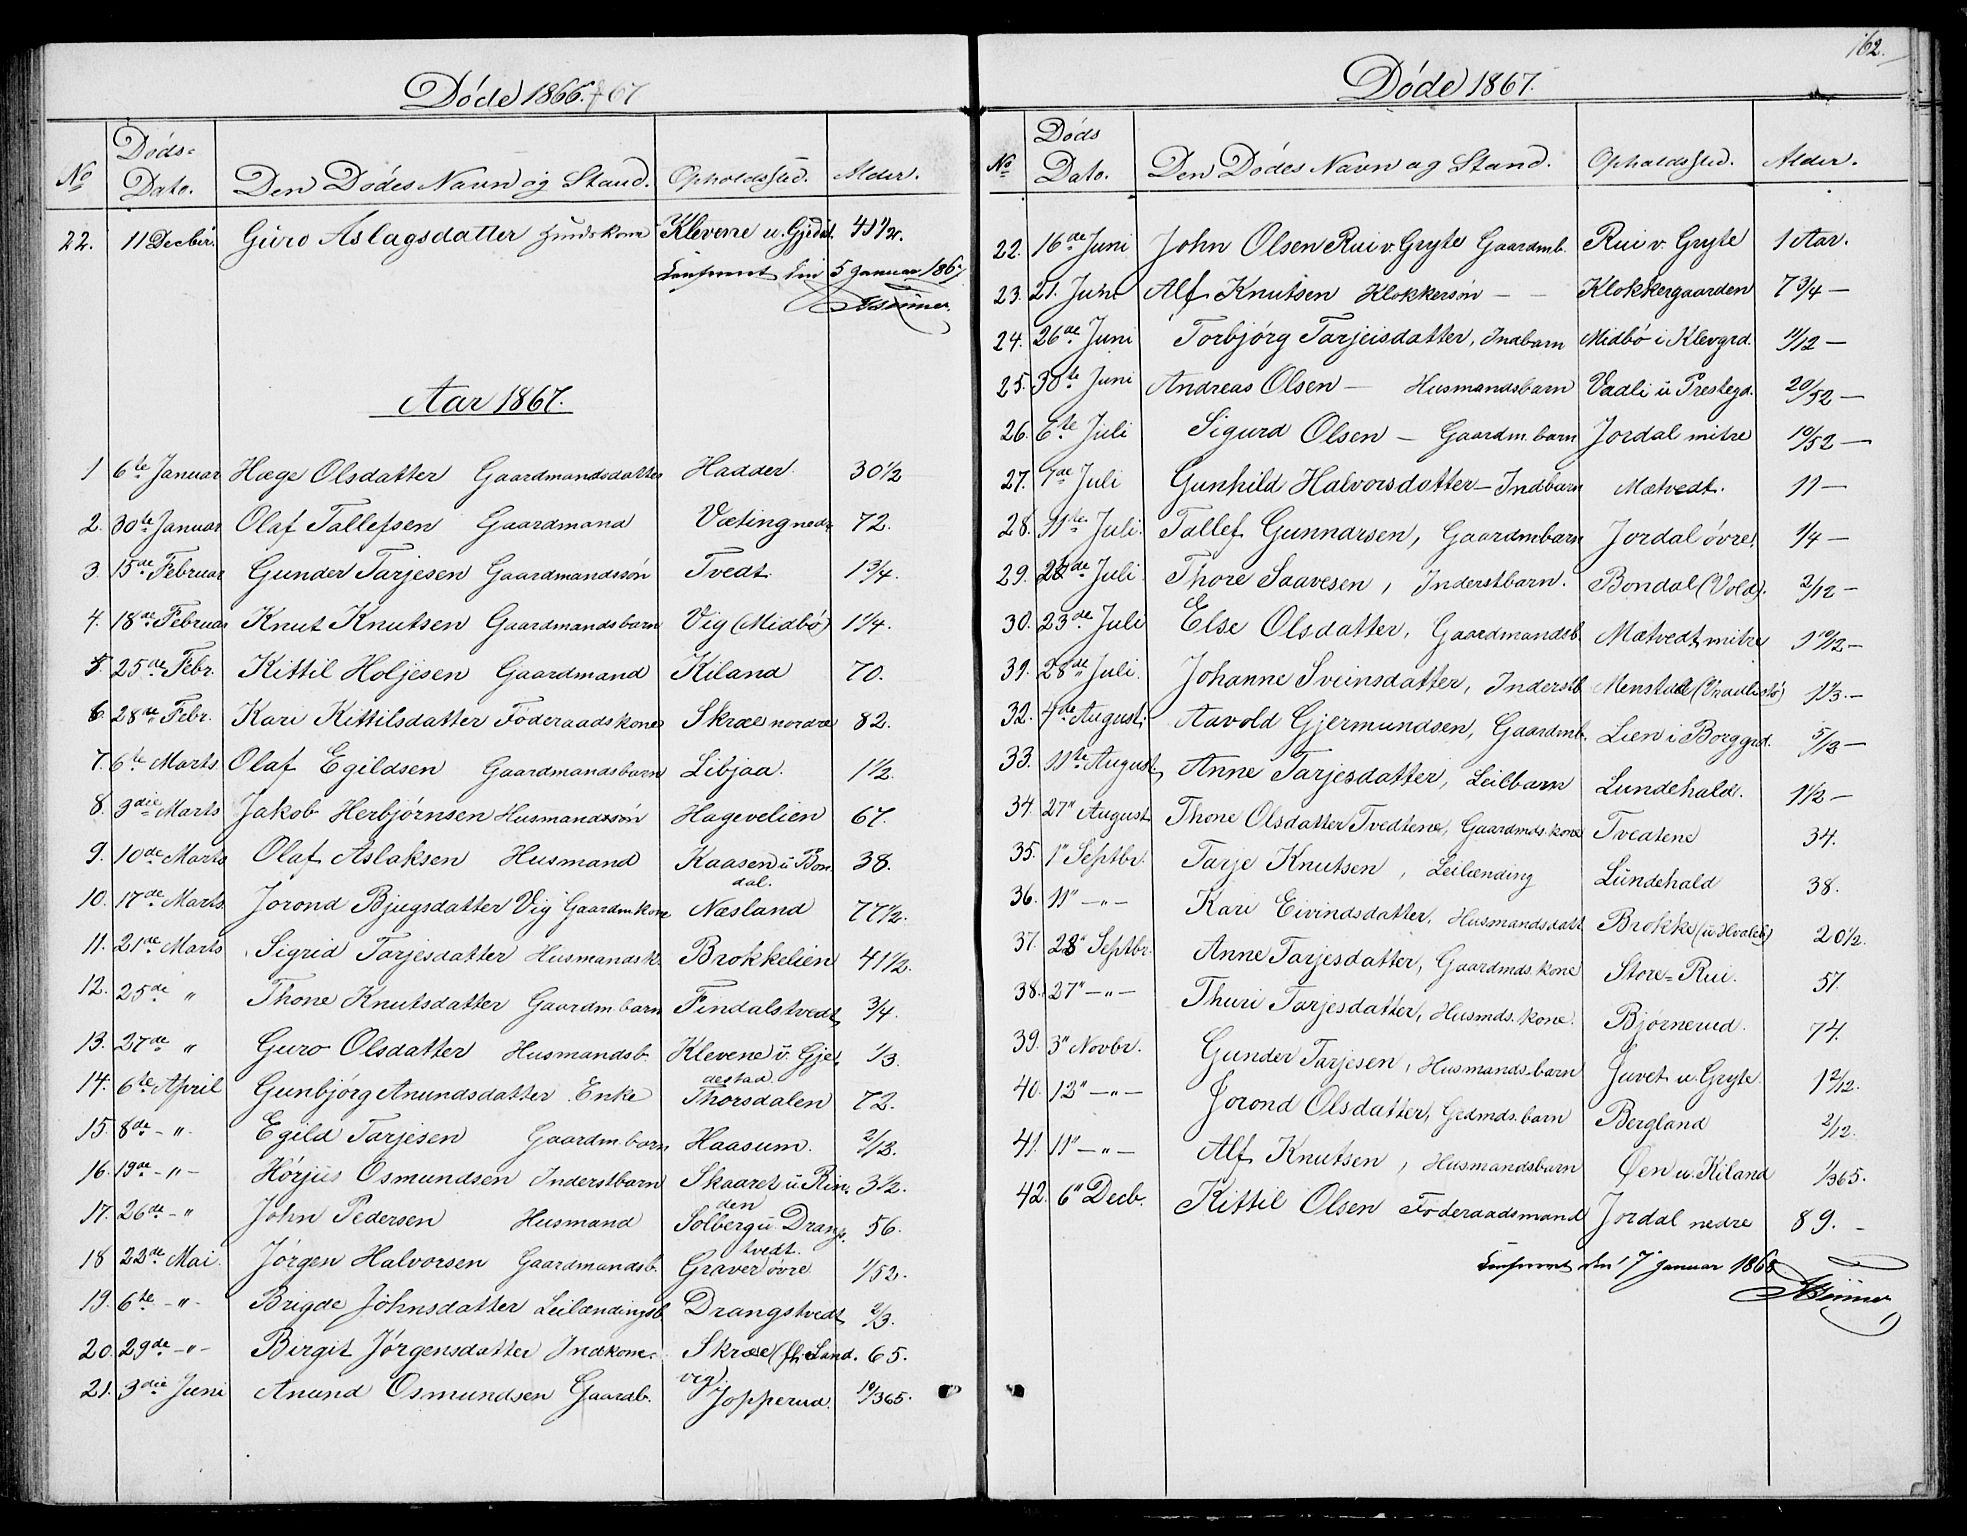 Døde 1866. & 67
No Døds= Dato. Den Dødes Navn og Stand. Opholdssted. Alder.
22. 11 Decbr. Guro Aslagsdatter Huuskone Klevene u. Gjedst. 41 1/2.
den 5 Januar 1867
Aar 1867.
1 6te Januar Hæge Olsdatter Gaardmandsdatter Hadder. 30 1/2
2. 30te Januar Olaf Tallefsen Gaardmand Vætingnedr. 72.
3. 15de Februar Gunder Tarjesen Gaardmandssøn Tvedt. 1 3/4.
4. 18de Februar Knut Knutsen Gaardmandsbarn Vig (Midbø) 1 1/4.
5. 25de Febr. Kittil Holjesen Gaardmand Kiland 70.
6. 28de Febr. Kari Kittilsdatter Föderaadskone Skræ nordre 82.
7. 6te Marts Olaf Egildsen Gaardmandsbarn Libjaa. 1 1/2.
8. 9die Marts Jakob Herbjørnsen Husmandssøn Hagevelien 67.
9. 10de Marts Olaf Aslaksen Husmand Kaasen u Bon
dal. 38.
10. 17de Marts. Jorond Bjugsdatter Vig Gaardmkone Næsland 77 1/2.
11. 21de Marts Sigrid Tarjesdatter Husmandsk. Brokkelien 41 1/2.
12. 25de " Thone Knutsdatter Gaardm.barn Findalstvedt 3/4.
13. 27de " Guro Olsdatter Husmandsb. Klevene u. Gje
destad 1/3.
14. 6te April Gunbjørg Anundsdatter Enke Thorsdalen 72.
15. 8de - " - Egild Tarjesen Gaardm.barn Haasum. 2/13.
16. 19de - " - Hørjus Osmundsen Inderstbarn Skaaret u Rin
den 3 1/2.
17. 26de - " John Pedersen Husmand Solberg u. Drangs
tvedt. 56.
18 22de Mai. Jørgen Halvorsen Gaardmandsb. Graver øvre 1/52.
19. 6te - " - Brigde Johnsdatter Leilændingsb. Drangstvedt 2/3.
20. 29de - " - Birgit Jørgensdatter Indkone. Skræ (Land.
vig) 65.
21. 3die Juni Anund Osmundsen Gaardb. Jopperud. 10/365.
162.
Døde 1867.
No Døds Dato. Den Dødes Navn og Stand. Opholdssted. Alder.
22. 16de Juni John Olsen Rui v. Gryte Gaardmb. Rui v. Gryte 1 Aar.
23. 21. Juni Alf Knutsen Klokkersøn - - Klokkergaarden 7 3/4 -
24. 26de Juni Torbjørg Tarjeisdatter, Indbarn Midbø i Klevgrd. 11/12 -
25. 30te Juni Andreas Olsen - Husmandsbarn Vadli u Prestegd. 20/52 -
26. 6te Juli Sigurd Olsen - Gaardm.barn Jordal mitre 10/52 -
27. 7de Juli Gunhild Halvorsdatter - Indbarn Mætvedt. 11 -
28. 11te Juli. Tallef Gunnarsen, Gaardmbarn Jordal øvre. 1/4 -
29. 28de Juli. Thore Saavesen, Inderstbarn. Bondal (Vold). 2/12 -
30. 23de Juli Else Olsdatter, Gaardmandsb. Mætvedt mitre 3 10/12 -
39. 28de Juli. Johanne Sveinsdatter, Inderstb. Menstad (Vraalistø) 1 1/3. -
32. 4de August; Aavold Gjermundsen, Gaardmb. Lien i Borggrd. 5/13 -
33. 11te August. Anne Tarjesdatter, Leilbarn Lundehald. 1 1/2 -
34 27" August Thone Olsdatter Tvedtene, Gaardmds.kone Tvedtene 34.
35. 1" Septbr. Tarje Knutsen, Leilænding Lundehald 38.
36. 11" - " - Kari Eivindsdatter, Husmandsdatt Brokke (u Hvaleb) 20 1/2.
37. 28" Septbr. Anne Tarjesdatter, Gaardmds.kone Store=Rui. 57.
38. 27" - " - Thuri Tarjesdatter, Husmds.kone. Bjørnerud. 74.
39. 3" Novbr. Gunder Tarjesen, Husmands.barn Juvet u. Gryte. 1 2/12.
40. 12" - " - Jorond Olsdatter, Grdmds.barn Bergland 2/12.
41. 11" - " - Alf Knutsen, Husmandsbarn Øen u. Kiland 1/365.
42. 6" Decb. Kittil Olsen Föderaadsmand Jordal nedre 89. -
den 17 Januar 1868